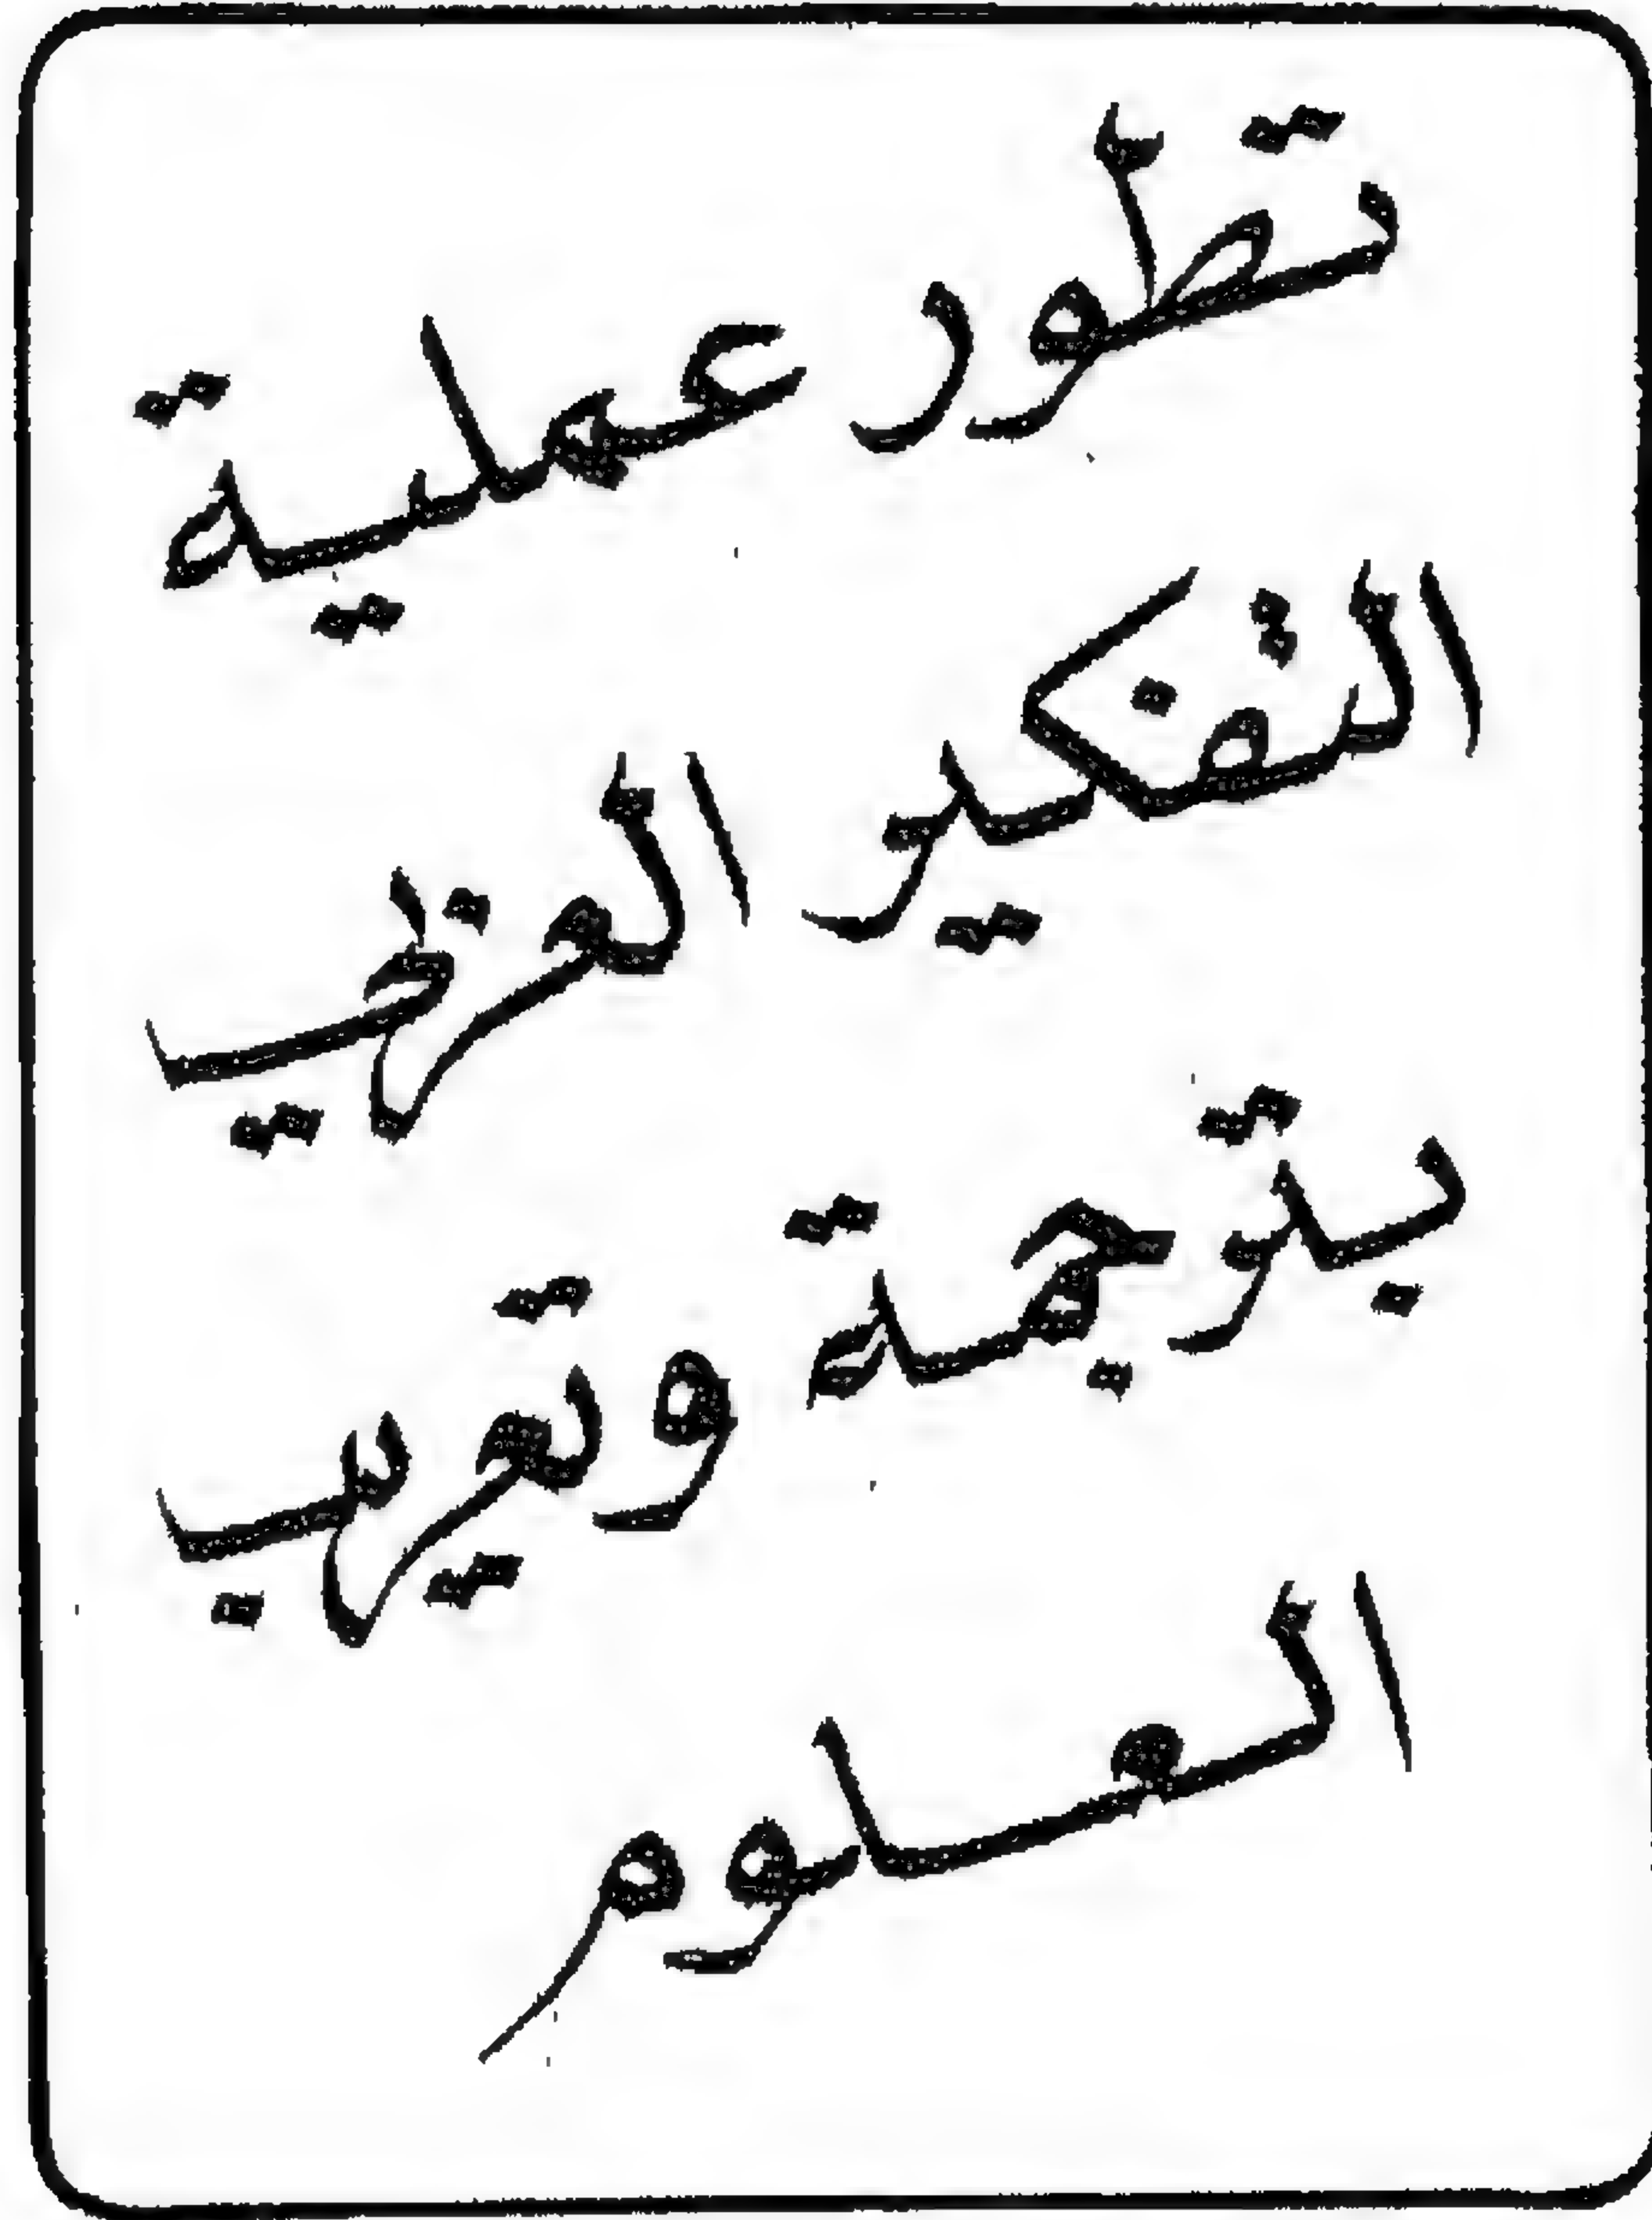 تطور عملية
التفكير العربي
بترجمة وتعريب
العلوم